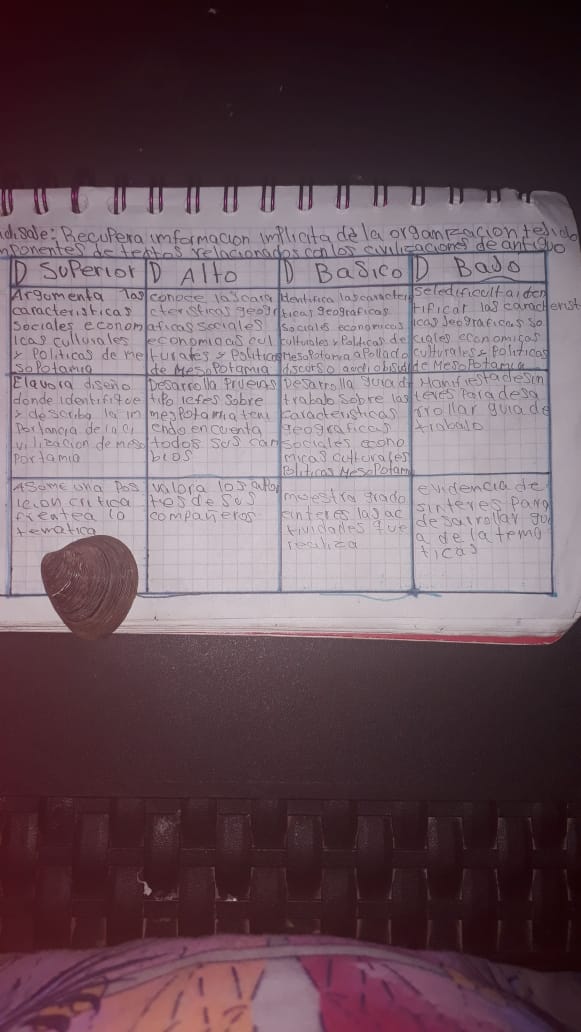 disale: Recupera imformacion implicita de la organizacion tejido
mponentes de textos relacionados con los civilizaciones de antiguo
D Superior
D Alto
D Basico
D Bajo
Argumenta las
caracteristicas
Sociales econom
icas culturales
y Politicas de me
soPotamia
conoce las cara
cteristicas geogr
aficas sociales
economicas cul
turales y Politicas
de Mesopotamia
Identifica las caracter
ticas geograficas
Sociales economicas
culturales y Politicas de
Mesopotamia apollado
discurso audiobisual
Seledificulta iden
tificar las caracterist
icas Geograficas So
ciales economicas
culturales y Politicas
de MesoPotamia
Elavora diseño
donde identifique
y describa la im
Portancia de la ci
vilizacion de meso
Potamia
Desarrolla Pruevas
tipo icfes Sobre
mesPotamia teni
endo en cuenta
todos sus cam
bios
Desarrolla guia de
trabajo Sobre las
caracteristicas
geograficas
Sociales econo
micas culturales
Politicas MesoPotam
Manifiesta desin
teres Para desa
rrollar guia de
trabajo
ASome una Pos
icion critica
frentea la
tematica
valora los apor
tes de sus
compañeros
muestra grado
enteres las ac
tividades que
realiza
evidencia de
sinteres Para
desarrollar gui
a de la tema
ticas